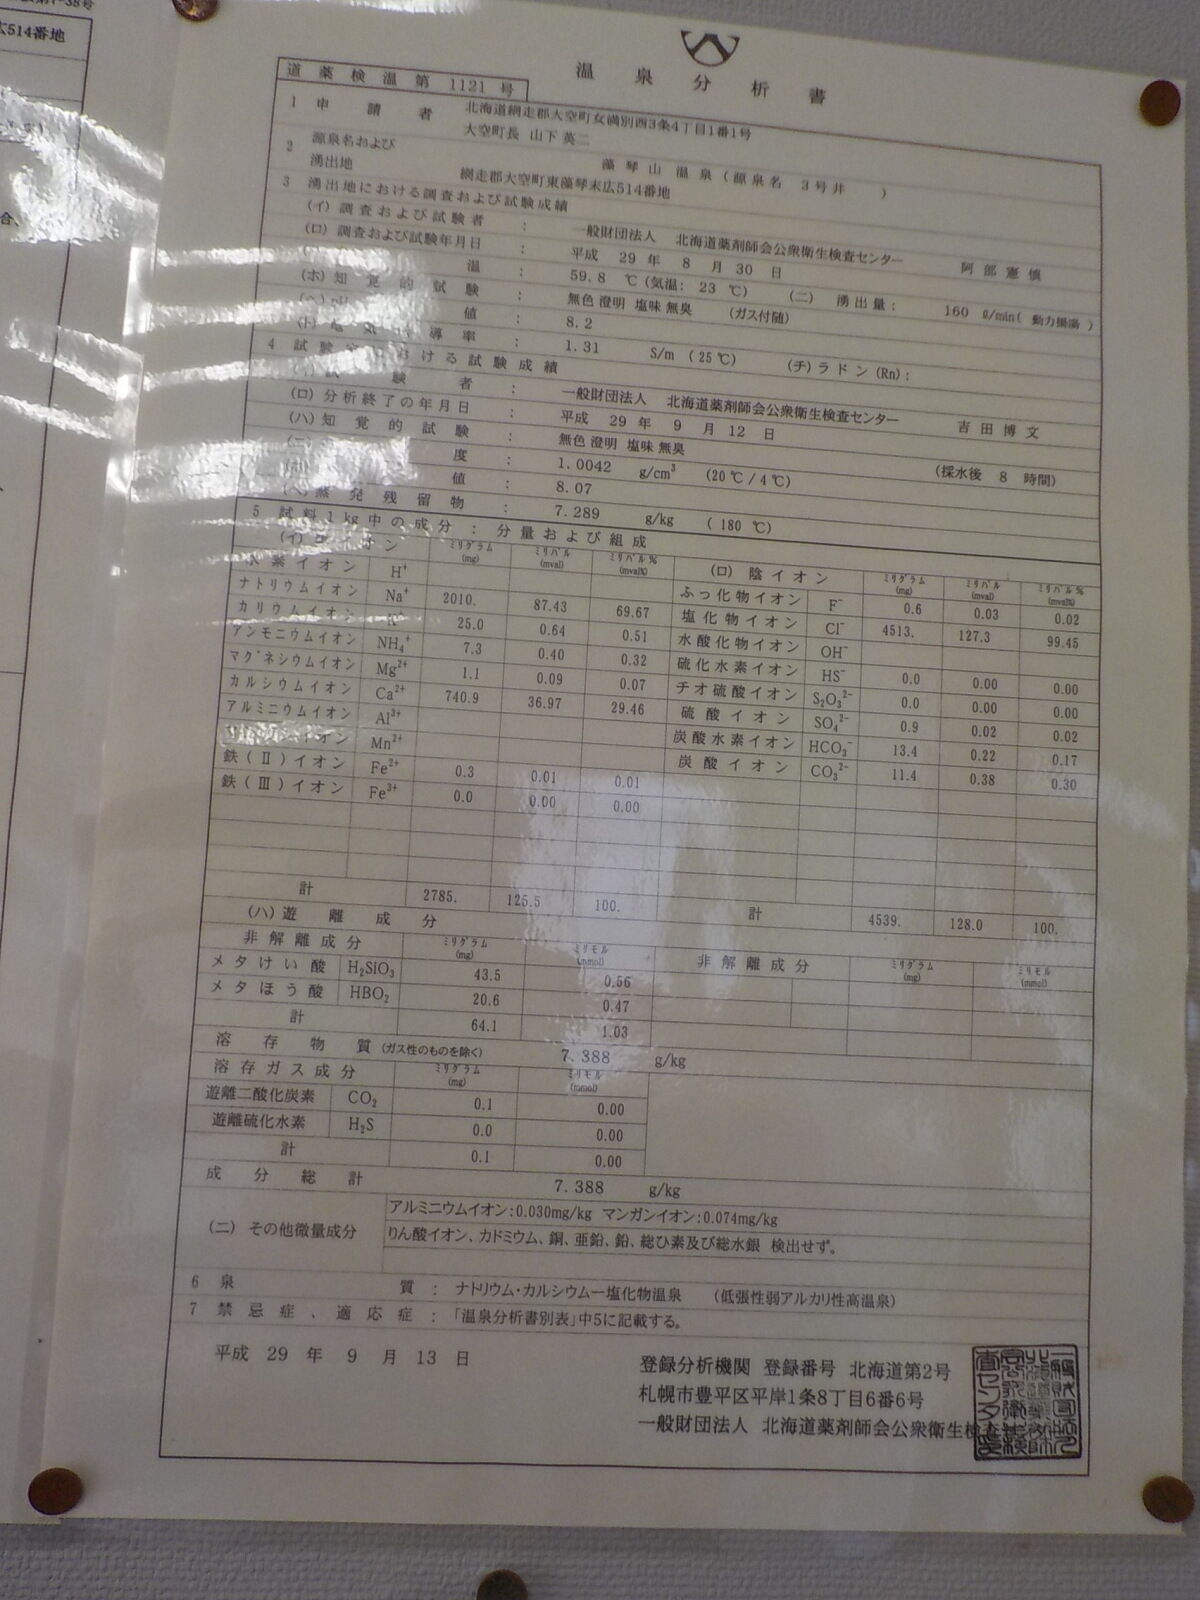 広514番地
温泉分析書
道薬検温第 1121 号
1 申請者 北海道網走郡大空町女満別西3条4丁目1番1号
大空町長 山下 英二
2 源泉名および 藻琴山温泉(源泉名 3号井 )
湧出地 網走郡大空町東藻琴末広514番地
3 湧出地における調査および試験成績
(イ)調査および試験者 : 一般財団法人 北海道薬剤師会公衆衛生検査センター 阿部憲慎
(ロ)調査および試験年月日 : 平成 29 年 8 月 30 日
温 : 59.8 ℃(気温: 23 ℃) (ニ) 湧出量: 160 ℓ/min( 動力揚湯 )
(ホ)知覚的試験 : 無色 澄明 塩味 無臭 (ガス付随)
(ヘ)pH値 : 8.2
(ト)電気伝導率 : 1.31 S/m (25℃) (チ)ラドン(Rn):
4 試験室における試験成績
(イ)試験者 : 一般財団法人 北海道薬剤師会公衆衛生検査センター 吉田博文
(ロ)分析終了の年月日 : 平成 29 年 9 月 12 日
(ハ)知覚的試験 : 無色 澄明 塩味 無臭 (採水後 8 時間)
(ニ) 度 : 1.0042 g/cm³ (20℃/4℃)
(ホ) 値 : 8.07
(ヘ)蒸発残留物 : 7.289 g/kg (180℃)
5 試料1kg中の成分 : 分量および組成
(イ)陽イオン ミリグラム(mg) ミリバル(mval) ミリバル%(mval%) (ロ) 陰イオン ミリグラム(mg) ミリバル(mval) ミリバル%(mval%)
水素イオン H⁺ ふっ化物イオン F⁻ 0.6 0.03 0.02
ナトリウムイオン Na⁺ 2010. 87.43 69.67 塩化物イオン Cl⁻ 4513. 127.3 99.45
カリウムイオン K⁺ 25.0 0.64 0.51 水酸化物イオン OH⁻
アンモニウムイオン NH₄⁺ 7.3 0.40 0.32 硫化水素イオン HS⁻ 0.0 0.00 0.00
マグネシウムイオン Mg²⁺ 1.1 0.09 0.07 チオ硫酸イオン S₂O₃²⁻ 0.0 0.00 0.00
カルシウムイオン Ca²⁺ 740.9 36.97 29.46 硫酸イオン SO₄²⁻ 0.9 0.02 0.02
アルミニウムイオン Al³⁺ 炭酸水素イオン HCO₃⁻ 13.4 0.22 0.17
マンガンイオン Mn²⁺ 炭酸イオン CO₃²⁻ 11.4 0.38 0.30
鉄(Ⅱ)イオン Fe²⁺ 0.3 0.01 0.01
鉄(Ⅲ)イオン Fe³⁺ 0.0 0.00 0.00
計 2785. 125.5 100. 計 4539. 128.0 100.
(ハ)遊離成分
非解離成分 ミリグラム(mg) ミリモル(mmol) 非解離成分 ミリグラム(mg) ミリモル(mmol)
メタけい酸 H₂SiO₃ 43.5 0.56
メタほう酸 HBO₂ 20.6 0.47
計 64.1 1.03
溶存物質(ガス性のものを除く) 7.388 g/kg
溶存ガス成分 ミリグラム(mg) ミリモル(mmol)
遊離二酸化炭素 CO₂ 0.1 0.00
遊離硫化水素 H₂S 0.0 0.00
計 0.1 0.00
成分総計 7.388 g/kg
(ニ) その他微量成分 アルミニウムイオン:0.030mg/kg マンガンイオン:0.074mg/kg
りん酸イオン、カドミウム、銅、亜鉛、鉛、総ひ素及び総水銀 検出せず。
6 泉質 : ナトリウム・カルシウム－塩化物温泉 (低張性弱アルカリ性高温泉)
7 禁忌症、適応症 : 「温泉分析書別表」中5に記載する。
平成 29 年 9 月 13 日
登録分析機関 登録番号 北海道第2号
札幌市豊平区平岸1条8丁目6番6号
一般財団法人 北海道薬剤師会公衆衛生検査センター